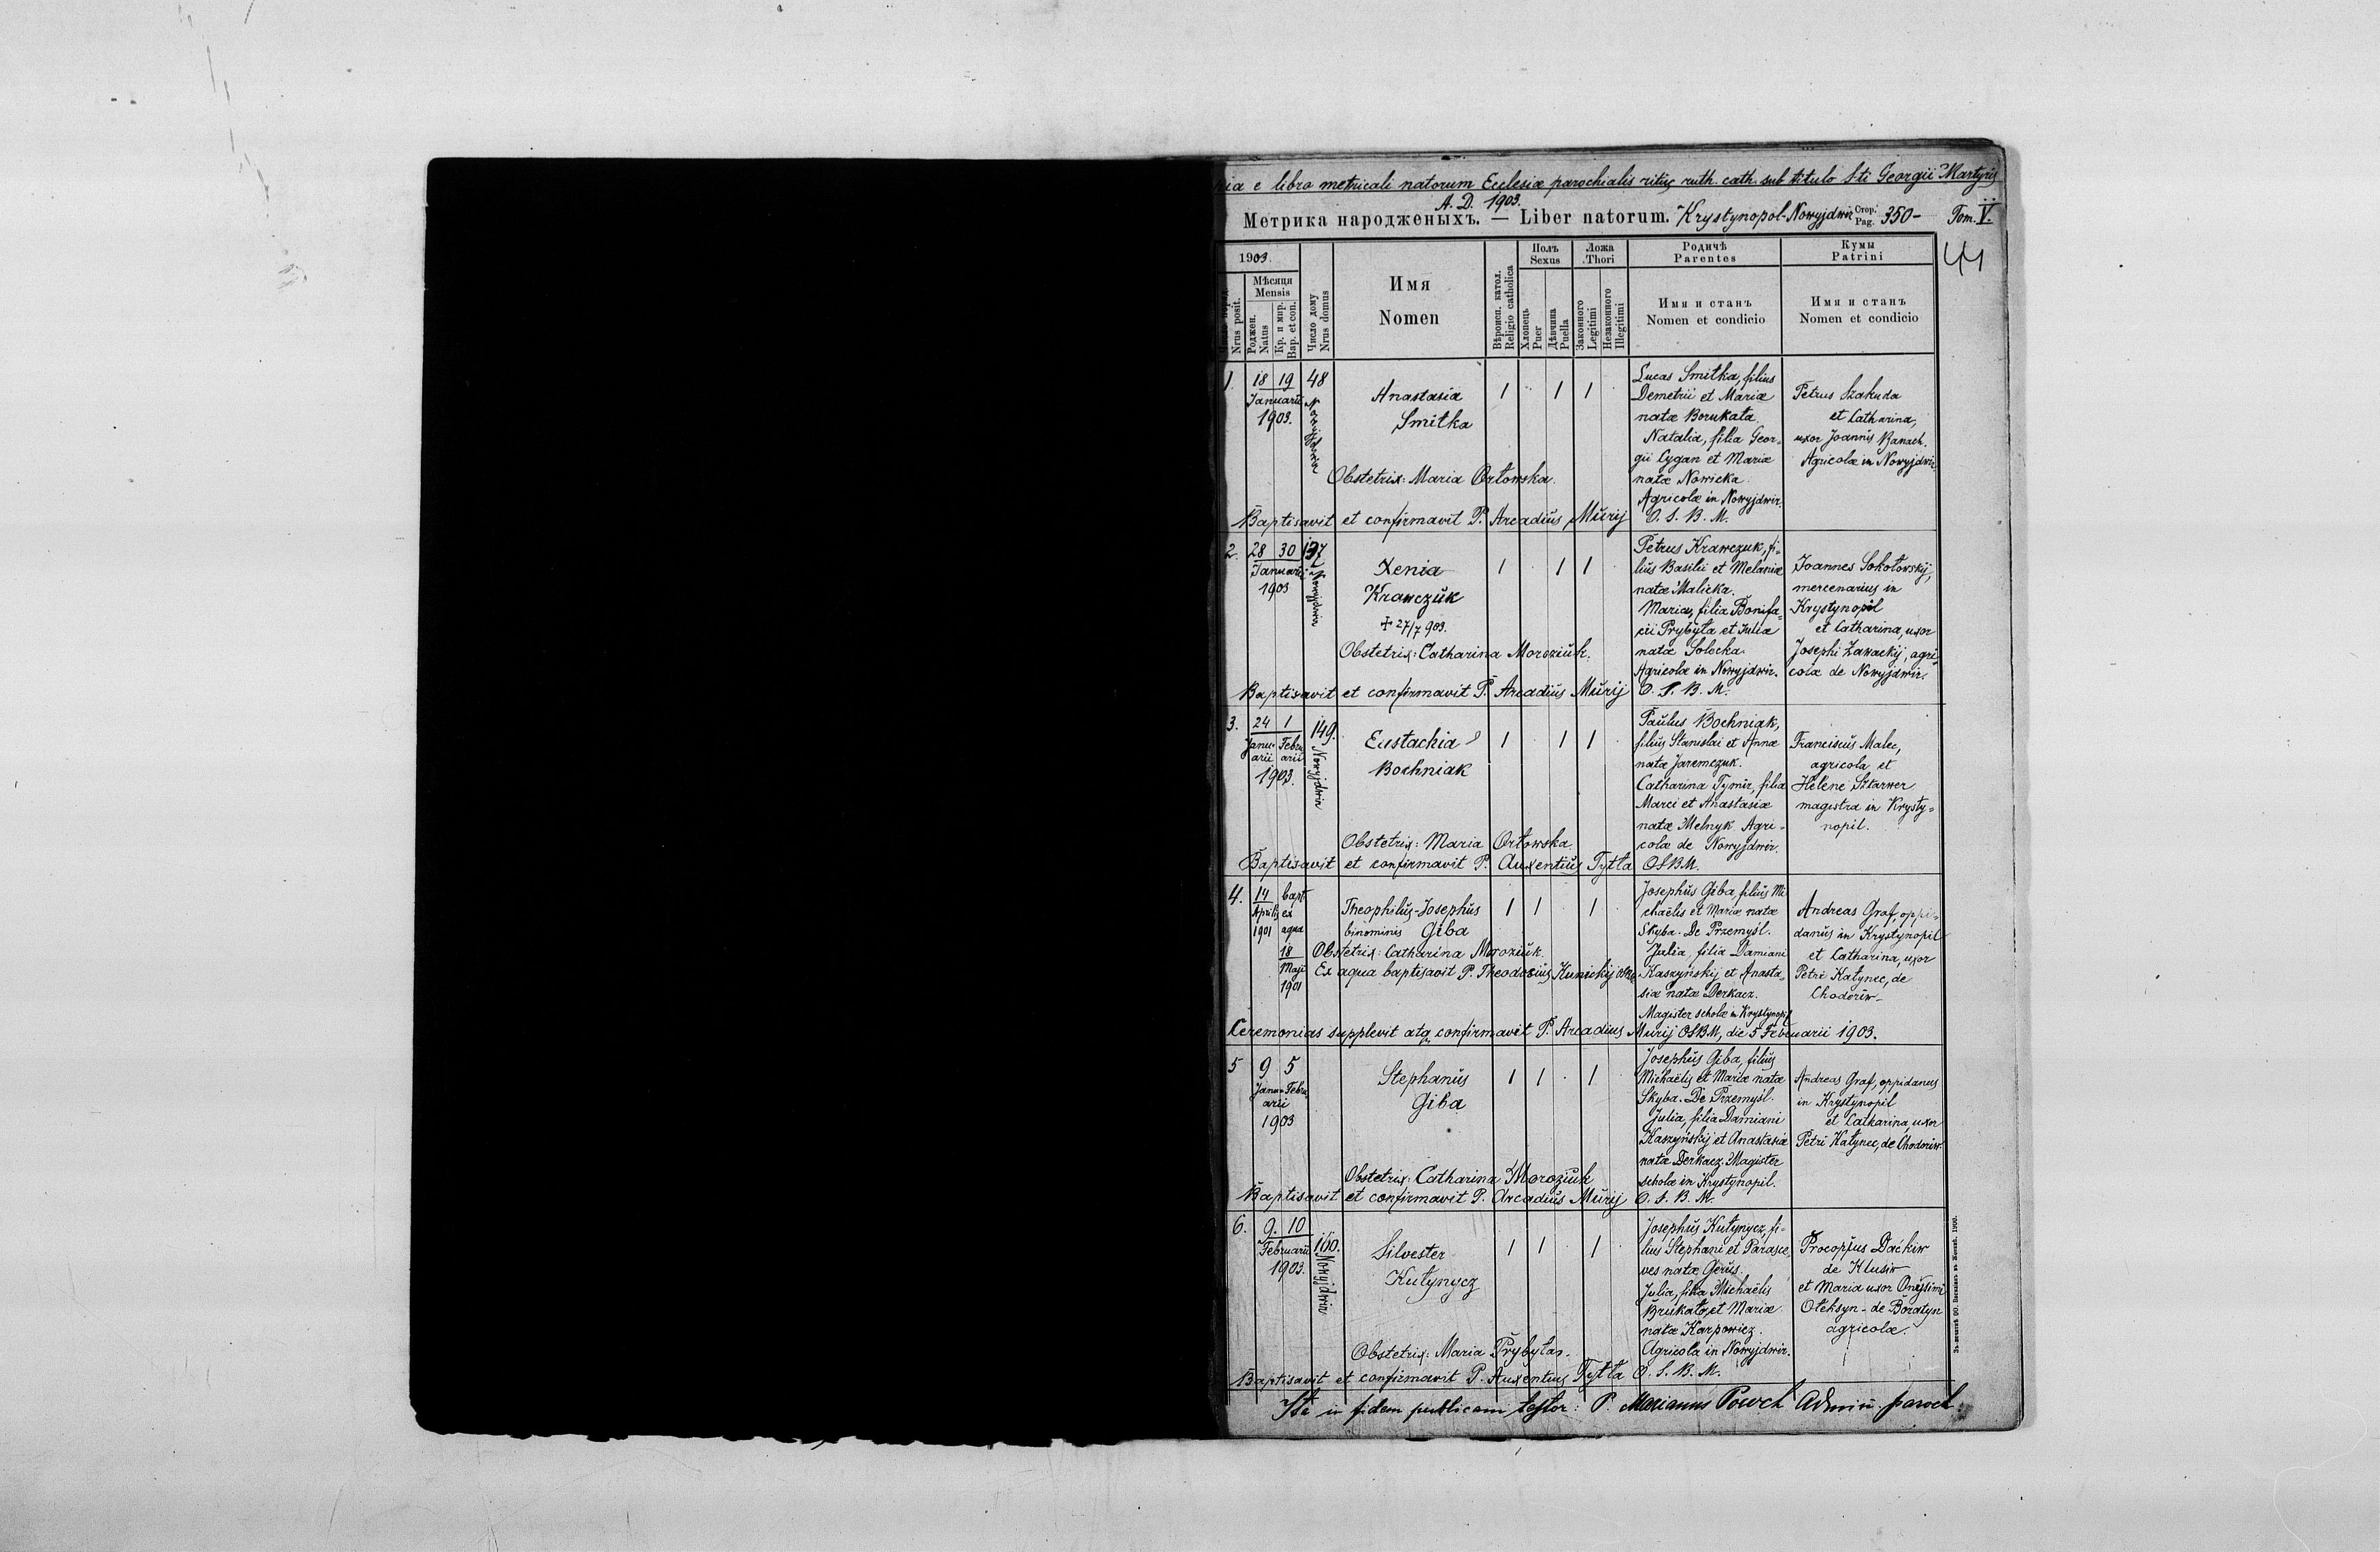 e libro metricali natorum Ecclesiæ parochialis ritus ruth. cath. sub titulo S-ti Georgii Martyris
A. D. 1903.
Метрика народженыхъ. — Liber natorum. Krystynopol-Nowyjdwir Стор. Pag. 350- Tom. V.
41
1903.
Мѣсяця
Mensis
Nrus posit.
Роджен.
Natus
Кр. и мир.
Bap. et con.
Число дому
Nrus domus
Имя
Nomen
Вѣроисп. катол.
Religio catholica
Полъ
Sexus
Хлопець
Puer
Дѣвчина
Puella
Ложа
Thori
Законного
Legitimi
Незаконного
Illegitimi
Родичѣ
Parentes
Имя и станъ
Nomen et condicio
Кумы
Patrini
Имя и станъ
Nomen et condicio
1. 18 19
Januarii
1903.
48
Nowyjdwir
Anastasia
Smitka
1 1 1
Obstetrix: Maria Orłowska.
Lucas Smitka, filius
Demetrii et Mariæ
natæ Borukata
Natalia, filia Geor-
gii Cygan et Mariæ
natæ Nowicka
Agricolæ in Nowyjdwir.
Petrus Szakuda
et Catharina,
uxor Joannis Banach.
Agricolæ in Nowyjdwir.
Baptisavit et confirmavit P. Arcadius Muryj O. S. B. M.
2. 28 30
Januarii
1903
137
Nowyjdwir
Xenia
Krawczuk
+ 27/7 903.
1 1 1
Obstetrix: Catharina Moroziuk.
Petrus Krawczuk, fi-
lius Basilii et Melaniæ
natæ Malicka.
Maria, filia Bonifa-
cii Prybyła et Juliæ
natæ Solocka
Agricolæ in Nowyjdwir.
Joannes Sokołowskij,
mercenarius in
Krystynopil
et Catharina, uxor
Josephi Zawackij, agri-
colæ de Nowyjdwir.
Baptisavit et confirmavit P. Arcadius Muryj O. S. B. M.
3. 24 1
Janu- Febru-
arii arii
1903.
149.
Nowyjdwir
Eustachia
Bochniak
1 1 1
Obstetrix: Maria Orłowska.
Paulus Bochniak,
filius Stanislai et Annæ
natæ Jaremczuk.
Catharina Tymir, filia
Marci et Anastasiæ
natæ Melnyk. Agri-
colæ de Nowyjdwir.
Franciscus Malec,
agricola et
Helene Sztarwer
magistra in Krysty-
nopil.
Baptisavit et confirmavit P. Auxentius Tytła OSBM.
4. 14
Aprilis
1901
bapt.
ex
aqua
18
Maji
1901
Theophilus-Josephus
binominis Giba
1 1 1
Obstetrix: Catharina Moroziuk.
Ex aqua baptisavit P. Theodosius Kunickij OSBM
Josephus Giba, filius Mi
chaëlis et Mariæ natæ
Skyba. De Przemyśl.
Julia, filia Damiani
Kaszyńskij et Anasta-
siæ natæ Derkacz.
Magister scholæ in Krystynopil
Andreas Graf, oppi-
danus in Krystynopil
et Catharina, uxor
Petri Katynec, de
Chodoriw.
Ceremonias supplevit atq confirmavit P. Arcadius Muryj OSBM, die 5 Februarii 1903.
5 9 5
Janu- Febru-
arii
1903
Stephanus
Giba
1 1 1
Obstetrix: Catharina Moroziuk
Josephus Giba, filius
Michaëlis et Mariæ natæ
Skyba. De Przemyśl.
Julia, filia Damiani
Kaszyńskij et Anastasiæ
natæ Derkacz. Magister
scholæ in Krystynopil.
Andreas Graf, oppidanus
in Krystynopil
et Catharina, uxor
Petri Katynec, de Chodoriw.
Baptisavit et confirmavit P. Arcadius Muryj O. S. B. M.
6. 9. 10
Februarii
1903.
160.
Nowyjdwir
Silvester
Kutynycz
1 1 1
Obstetrix: Maria Prybyła.
Josephus Kutynycz, fi-
lius Stephani et Parasce
ves natæ Gerus.
Julia, filia Michaëlis
Brukato, et Mariæ
natæ Karpowicz.
Agricola in Nowyjdwir.
Procopius Dackiw
de Klusiw
et Maria uxor Onysimi
Oteksyn - de Boratyn
agricolæ.
Baptisavit et confirmavit P. Auxentius Tytła O. S. B. M.
Ita in fidem publicam testor: P. Marianus Powch Admin. paroch.